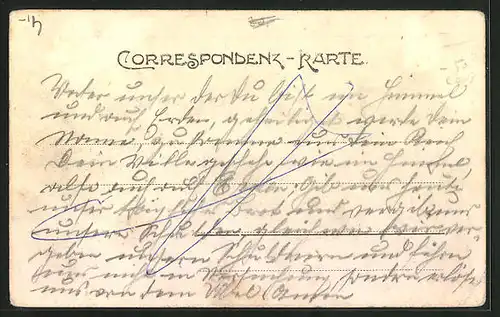 4-
CORRESPONDENZ-KARTE.
Vater unser der du bist im Himmel
und auf Erden, geheiligt werde dein
Name, zu komme uns dein Reich
Dein Wille geschehe wie im Himmel
also auch auf Erden. Gib uns heute
unser tägliches Brot und vergib uns
unsere Schulden als wir ver
geben unsern Schuldigern und führe
uns nicht in Versuchung sondern erlöse
uns von dem Übel Amen